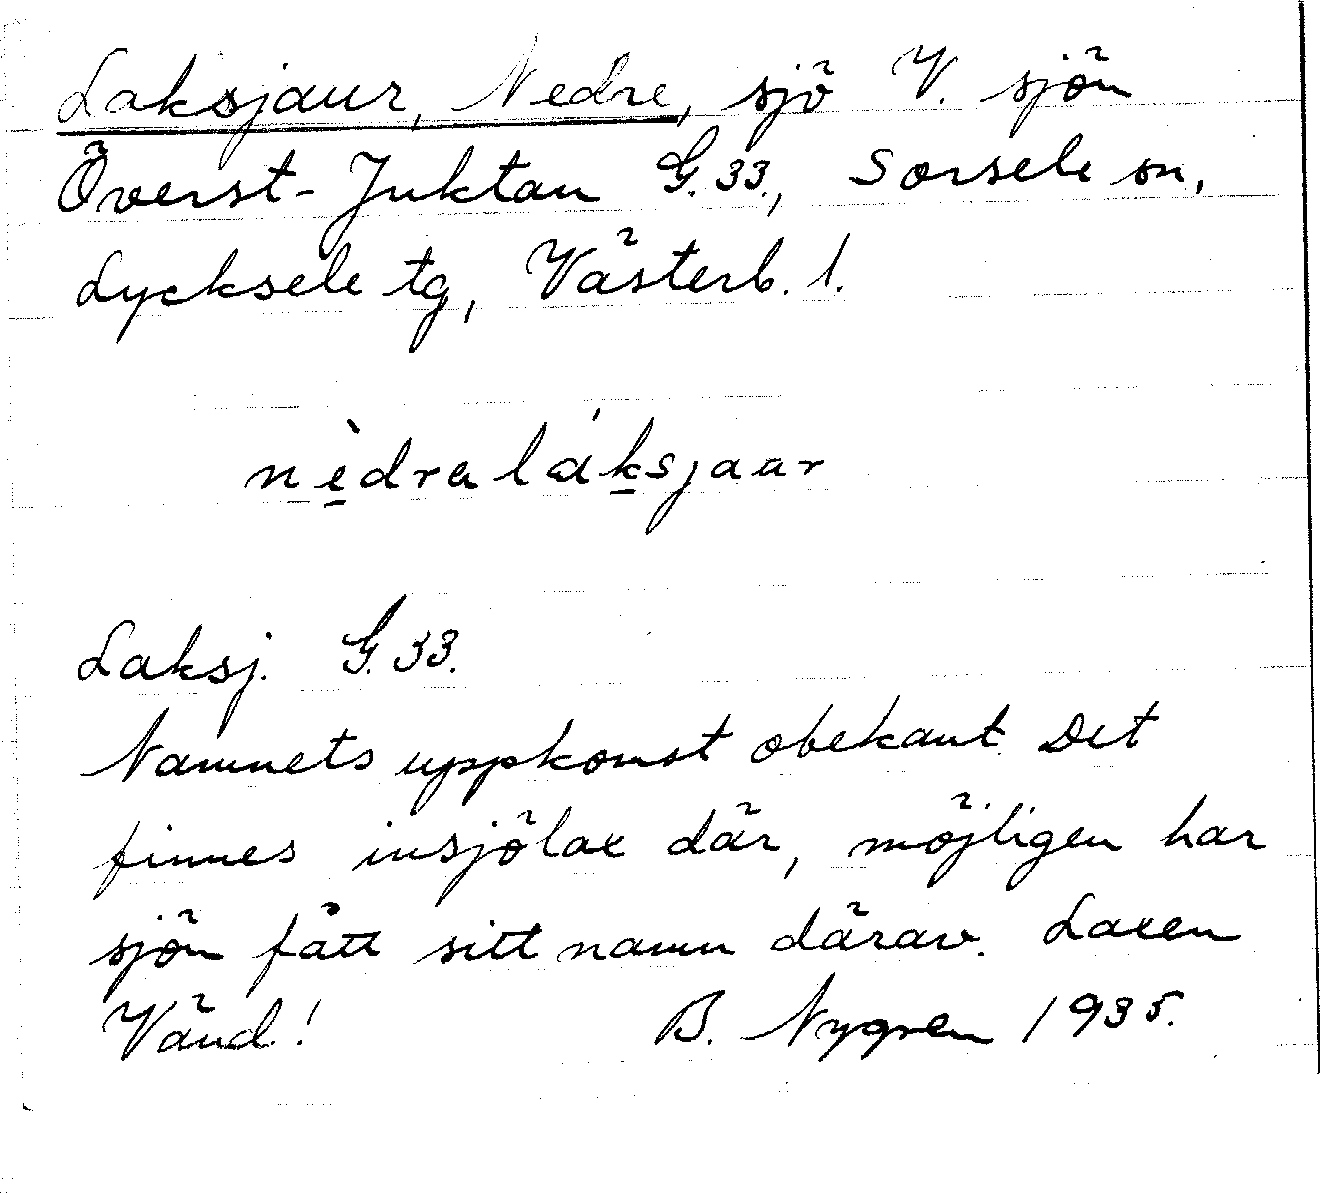 Laksjaur, Nedre, sjö V. sjön
Överst-Juktan G. 33., Sorsele sn,
Lycksele tg, Västerb. l.
nèdraláksjaar
Laksj. G. 33.
Namnets uppkomst obekant. Det
finnes insjölax där, möjligen har
sjön fått sitt namn därav. Laxen
Vänd! B. Nygren 1935.